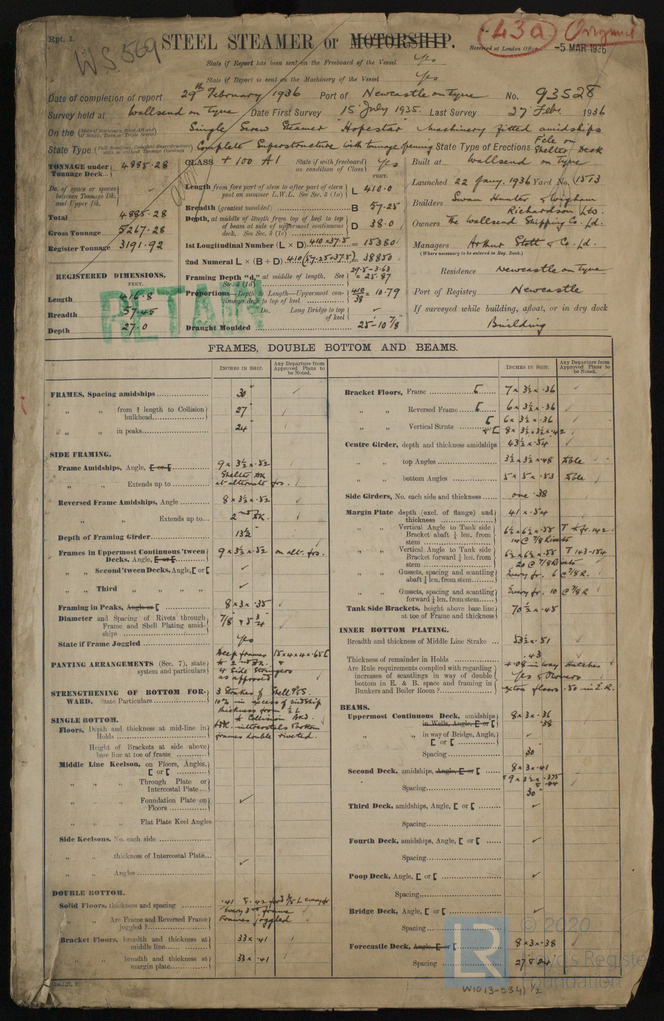 Rpt. 1.
WS 569
STEEL STEAMER or MOTORSHIP.
43a
Received at London Office -5 MAR 1936
State if Report has been sent on the Freeboard of the Vessel Yes
State if Report is sent on the Machinery of the Vessel Yes
Date of completion of report 29th February 1936 Port of Newcastle on Tyne No. 93528
Survey held at Wallsend on Tyne Date First Survey 15 July 1935 Last Survey 27 Feb. 1936
On the Single Screw Steamer "Hopestar" Machinery fitted amidships
State Type Complete Superstructure with tonnage opening State Type of Erections Fcle on Shelter Deck
TONNAGE under Tonnage Deck 4885.28
Do. of space or spaces between Tonnage Dk. and Upper Dk.
Total 4885.28
Gross Tonnage 5267.28
Register Tonnage 3191.92
REGISTERED DIMENSIONS.
FEET.
Length 416.8
Breadth 57.45
Depth 27.0
CLASS + 100 A1 State if with freeboard as condition of Class Yes
Length from fore part of stem to after part of stern post on summer L.W.L. See Sec. 2 (1a) L 410.0
Breadth (greatest moulded) B 57.25
Depth, at middle of length from top of keel to top of beam at side of uppermost continuous deck. D 38.0
1st Longitudinal Number (L × D) = 15380
2nd Numeral L × (B + D) = 38850
Framing Depth "d," at middle of length. = 25.87
Proportions—Depth to Length—Uppermost continuous deck to top of keel = 10.79
Do. Long Bridge to top of keel
Draught Moulded 25-10 7/8
RETAIN
Built at Wallsend on Tyne
Launched 22 Jany. 1936 Yard No. 1513
Builders Swan Hunter & Wigham Richardson Ltd.
Owners The Wallsend Shipping Co. Ld.
Managers Arthur Stott & Co. Ld.
(Where necessary to be entered in Reg. Book)
Residence Newcastle on Tyne
Port of Registry Newcastle
If surveyed while building, afloat, or in dry dock
Building
FRAMES, DOUBLE BOTTOM AND BEAMS.
INCHES IN SHIP. Any Departure from Approved Plans to be Noted.
FRAMES, Spacing amidships 30"
" " from 1/5 length to Collision bulkhead 27"
" " in peaks 24
SIDE FRAMING.
Frame Amidships, Angle, 9 × 3½ × .52
" " Extends up to Shelter Dk at alternate frs.
Reversed Frame Amidships, Angle 8 × 3½ × .52
" " Extends up to 2nd Dk.
Depth of Framing Girder 13½
Frames in Uppermost Continuous 'tween Decks, Angle, 9 × 3½ × .52 on alt. frs.
" Second 'tween Decks, Angle, [ or [
" Third " "
Framing in Peaks, Angle or [ 8 × 3 × .35
Diameter and Spacing of Rivets through Frame and Shell Plating amidships 7/8
State if Frame Joggled Yes
PANTING ARRANGEMENTS (Sec. 7), state system and particulars Deep frames to 2nd Dk. & 4 Side Stringers as approved
STRENGTHENING OF BOTTOM FORWARD. State Particulars 3 Strakes of Shell Pls.
to Collision Bhd.
frames double riveted.
SINGLE BOTTOM.
Floors, Depth and thickness at mid-line in Holds
Height of Brackets at side above base line at toe of frame
Middle Line Keelson, on Floors, Angles, [ or [
" " Through Plate or Intercostal Plate
" " Foundation Plate on Floors
" " Flat Plate Keel Angles
Side Keelsons, No. each side
" " thickness of Intercostal Plate
" " Angles
DOUBLE BOTTOM.
Solid Floors, thickness and spacing every 3rd frame
Are Frame and Reversed Frame joggled? Frames joggled
Bracket Floors, breadth and thickness at middle line 33 × .41
" " breadth and thickness at margin plate 33 × .41
INCHES IN SHIP. Any Departure from Approved Plans to be Noted.
Bracket Floors, Frame [ 7 × 3½ × .36
" " Reversed Frame [ 6 × 3½ × .36
" " Vertical Struts [ 6 × 3½ × .36
8 × 3½ × 3½ × .42
Centre Girder, depth and thickness amidships 43½ × .54
" " top Angles 3½ × 3½ × .48 Dble
" " bottom Angles 5 × 5 × .53 Dble
Side Girders, No. each side and thickness one .38
Margin Plate depth (excl. of flange) and thickness 41 × .54
" " Vertical Angle to Tank side Bracket abaft ¼ len. from stem 6½ × 6½ × .55
" " Vertical Angle to Tank side Bracket forward ¼ len. from stem 6½ × 6½ × .55
" " Gussets, spacing and scantling abaft ¼ len. from stem Every fr.
" " Gussets, spacing and scantling forward ¼ len. from stem Every fr.
Tank Side Brackets, height above base line at toe of Frame and thickness 70½ × .45
INNER BOTTOM PLATING.
Breadth and thickness of Middle Line Strake 53½ × .51
Thickness of remainder in Holds .43 + .08 in way Hatches
Are Rule requirements complied with regarding increases of scantlings in way of double bottom in E. & B. space and framing in Bunkers and Boiler Room? Yes
BEAMS.
Uppermost Continuous Deck, amidships in Wells, Angle, [ or [ 8 × 3 × .36
.38
" " in way of Bridge, Angle, [ or [
Spacing 30
Second Deck, amidships, Angle, [ or [ 8 × 3 × .41
Spacing 30
Third Deck, amidships, Angle, [ or [
Spacing
Fourth Deck, amidships, Angle, [ or [
Spacing
Poop Deck, Angle, [ or [
Spacing
Bridge Deck, Angle, [ or [
Spacing
Forecastle Deck, Angle, [ or [ 8 × 3 × .38
Spacing 27 & 24
LR
© 2020
Lloyd's Register
Foundation
W1013-0341 1/2